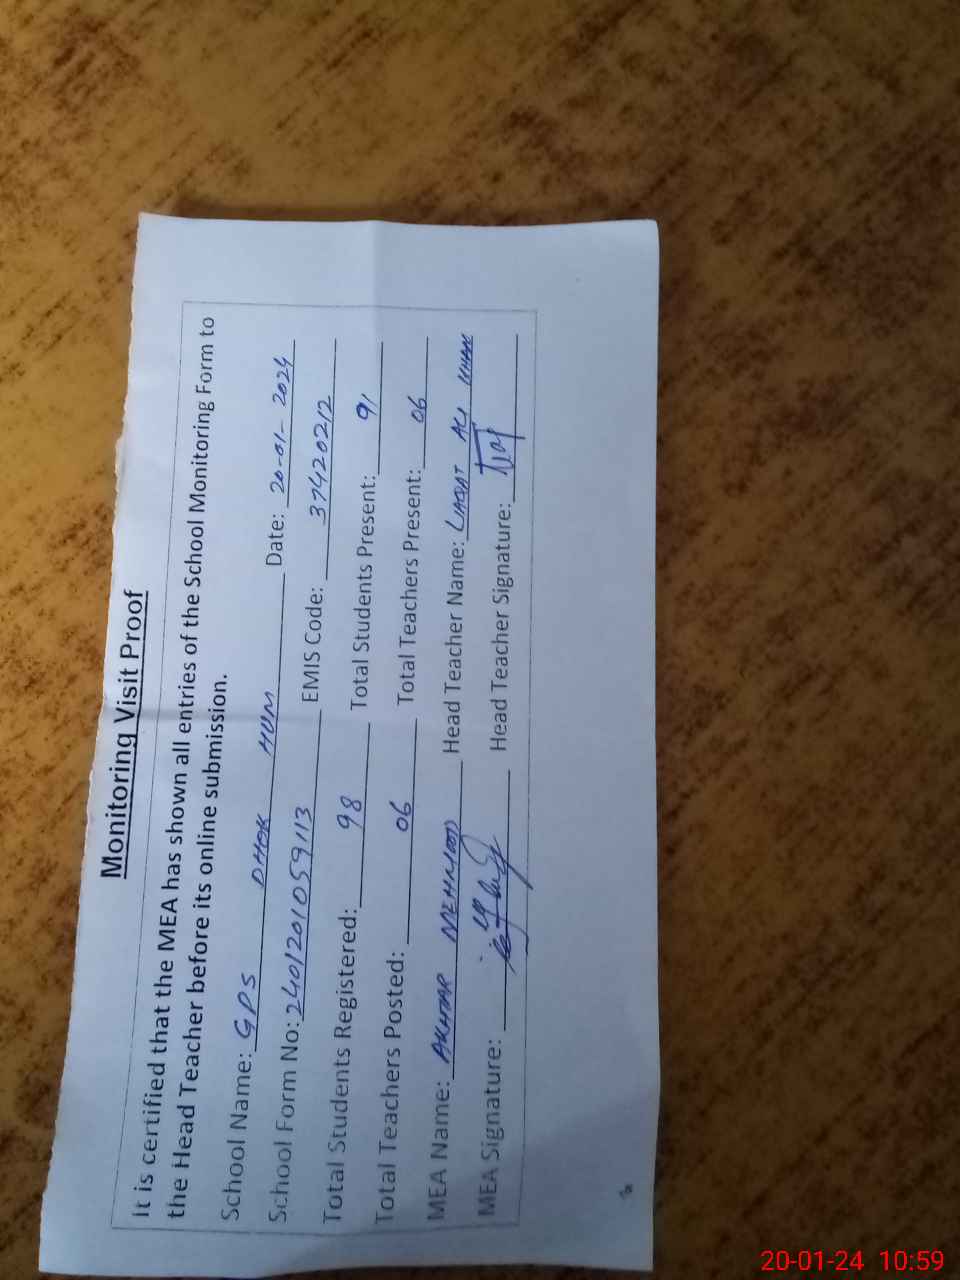 Monitoring Visit Proof
It is certified that the MEA has shown all entries of the School Monitoring Form to
the Head Teacher before its online submission.
School Name: GPS DHOK HUM Date: 20-01-2024
School Form No: 2401201059113 EMIS Code: 37420212
Total Students Registered: 98 Total Students Present: 91
Total Teachers Posted: 06 Total Teachers Present: 06
MEA Name: AKHTAR MEHMOOD Head Teacher Name: LIAQAT ALI KHAN
MEA Signature: Head Teacher Signature:
20-01-24 10:59